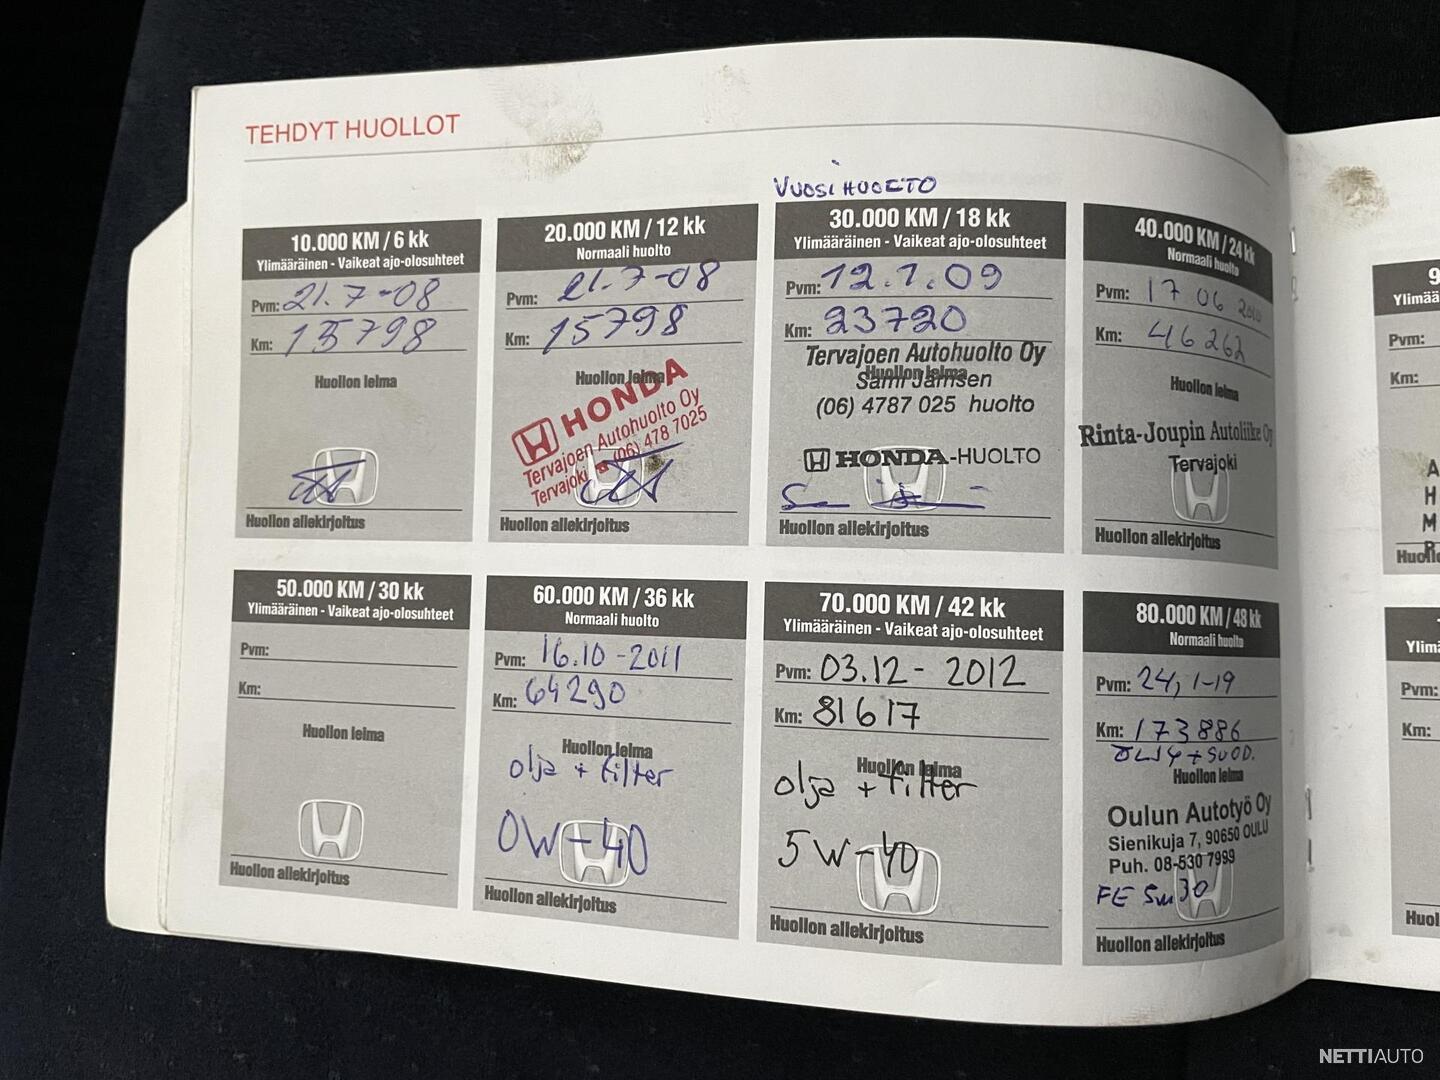 TEHDYT HUOLLOT
VUOSIHUOLTO
10.000 KM / 6 kk
Ylimääräinen - Vaikeat ajo-olosuhteet
Pvm: 21.7-08
Km: 15798
Huollon leima
Huollon allekirjoitus
20.000 KM / 12 kk
Normaali huolto
Pvm: 21.7-08
Km: 15798
Huollon leima
HONDA
Tervajoen Autohuolto Oy
Tervajoki ☎ (06) 478 7025
Huollon allekirjoitus
30.000 KM / 18 kk
Ylimääräinen - Vaikeat ajo-olosuhteet
Pvm: 12.1.09
Km: 23720
Tervajoen Autohuolto Oy
Huollon leima
Sami Jamsen
(06) 4787 025 huolto
HONDA-HUOLTO
Huollon allekirjoitus
40.000 KM / 24 kk
Normaali huolto
Pvm: 17 06 2010
Km: 46262
Huollon leima
Rinta-Joupin Autoliike Oy
Tervajoki
Huollon allekirjoitus
50.000 KM / 30 kk
Ylimääräinen - Vaikeat ajo-olosuhteet
Pvm:
Km:
Huollon leima
Huollon allekirjoitus
60.000 KM / 36 kk
Normaali huolto
Pvm: 16.10-2011
Km: 64290
Huollon leima
olja + filter
0W-40
Huollon allekirjoitus
70.000 KM / 42 kk
Ylimääräinen - Vaikeat ajo-olosuhteet
Pvm: 03.12-2012
Km: 81617
Huollon leima
olja + filter
5W-40
Huollon allekirjoitus
80.000 KM / 48 kk
Normaali huolto
Pvm: 24,1-19
Km: 173886
ÖLJY + SUOD.
Huollon leima
Oulun Autotyö Oy
Sienikuja 7, 90650 OULU
Puh. 08-530 7999
FE 5w30
Huollon allekirjoitus
9
Ylimää
Pvm:
Km:
A
H
M
P
Huoll
Ylim
Pvm:
Km:
Huol
NETTIAUTO